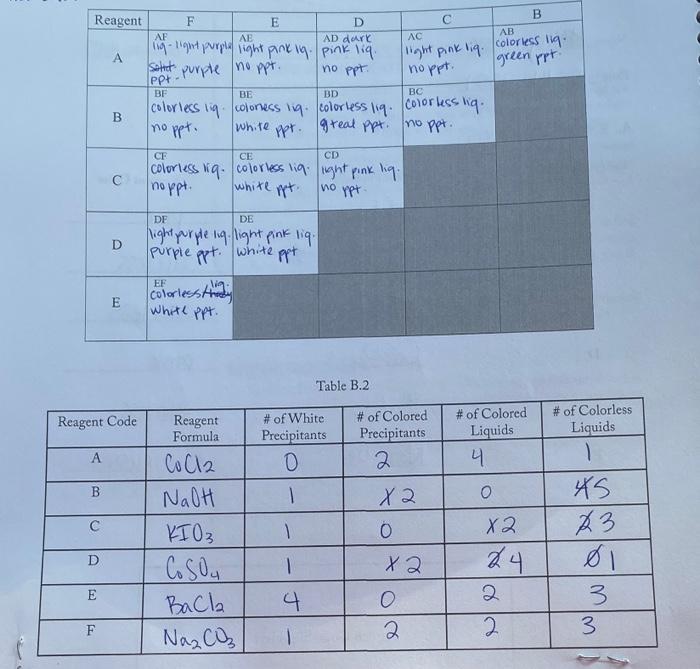 Reagent F E D C B
A
AF
liq-light purple
purple
ppt-
AE
light pink liq.
no ppt.
AD dark
pink liq.
no ppt.
AC
light pink liq.
no ppt.
AB
colorless liq.
green ppt.
B
BF
colorless liq.
no ppt.
BE
colorless liq.
white ppt.
BD
colorless liq.
ppt.
BC
colorless liq.
no ppt.
C
CF
colorless liq.
no ppt.
CE
colorless liq.
white ppt.
CD
light pink liq.
no ppt.
D
DF
light purple liq.
purple ppt.
DE
light pink liq.
white ppt
E
EF
liq.
colorless/
white ppt.
Table B.2
Reagent Code Reagent Formula # of White Precipitants # of Colored Precipitants # of Colored Liquids # of Colorless Liquids
A CoCl2 0 2 4 1
B NaOH 1 2 0 5
C KIO3 1 0 2 3
D CoSO4 1 2 4 1
E BaCl2 4 0 2 3
F Na2CO3 1 2 2 3